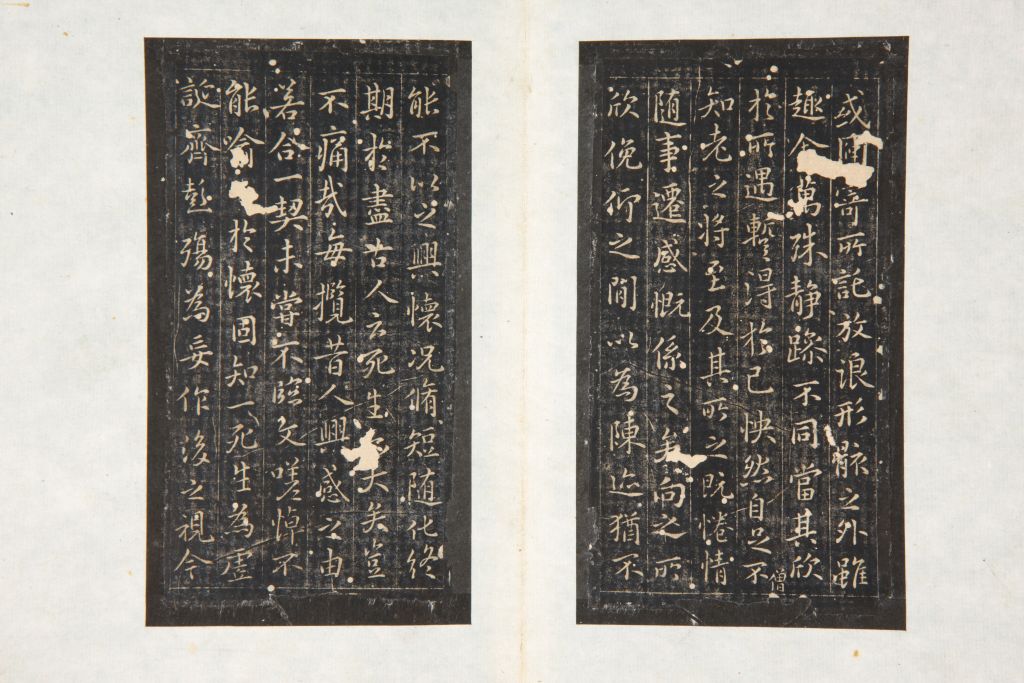 或因寄所託放浪形骸之外雖
趣舍萬殊静躁不同當其欣
於所遇蹔得於己怏然自足不
僧
知老之將至及其所之既惓情
随事遷感慨係之矣向之所
欣俛仰之閒以為陳迹猶不
能不以之興懷况脩短随化終
期於盡古人云死生大矣豈
不痛哉每攬昔人興感之由
若合一契未嘗不臨文嗟悼不
能喻於懷固知一死生為虚
誕齊彭殤為妄作後之視今